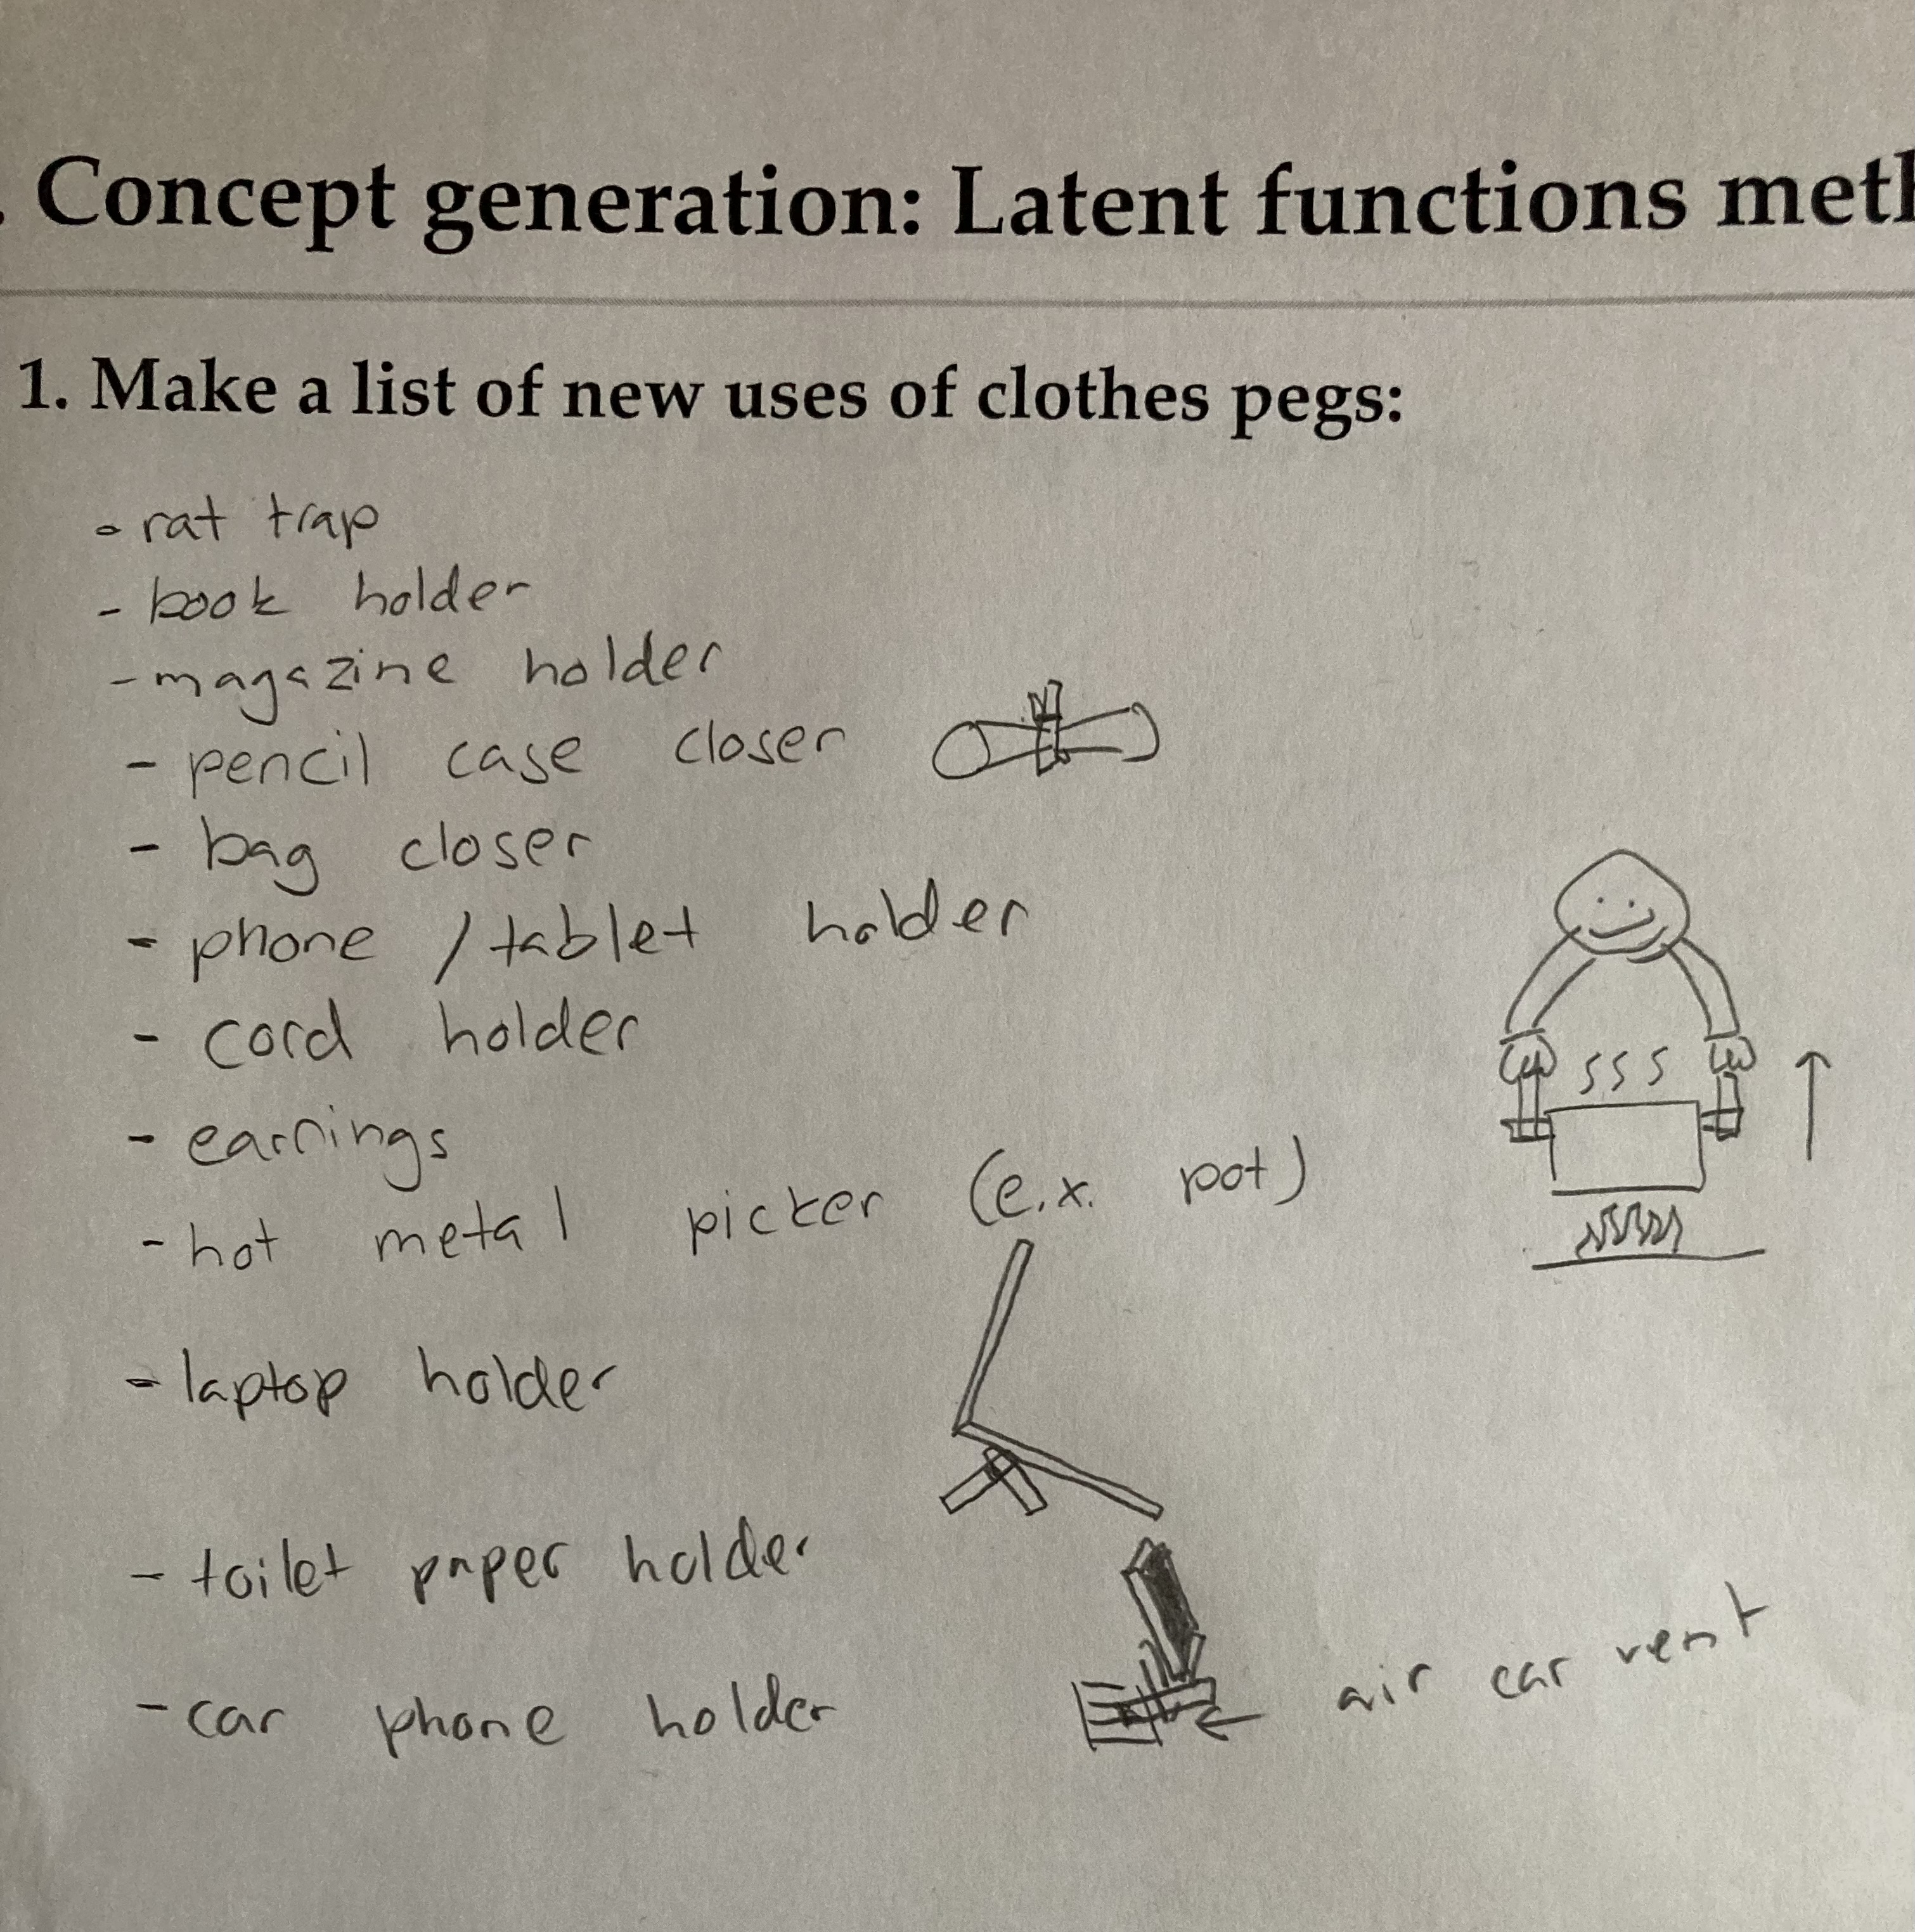 . Concept generation: Latent functions meth
1. Make a list of new uses of clothes pegs:
- rat trap
- book holder
- magazine holder
- pencil case closer
- bag closer
- phone / tablet holder
- cord holder
- earrings
- hot metal picker (e.x. pot)
sss
- laptop holder
- toilet paper holder
- car phone holder
air car vent